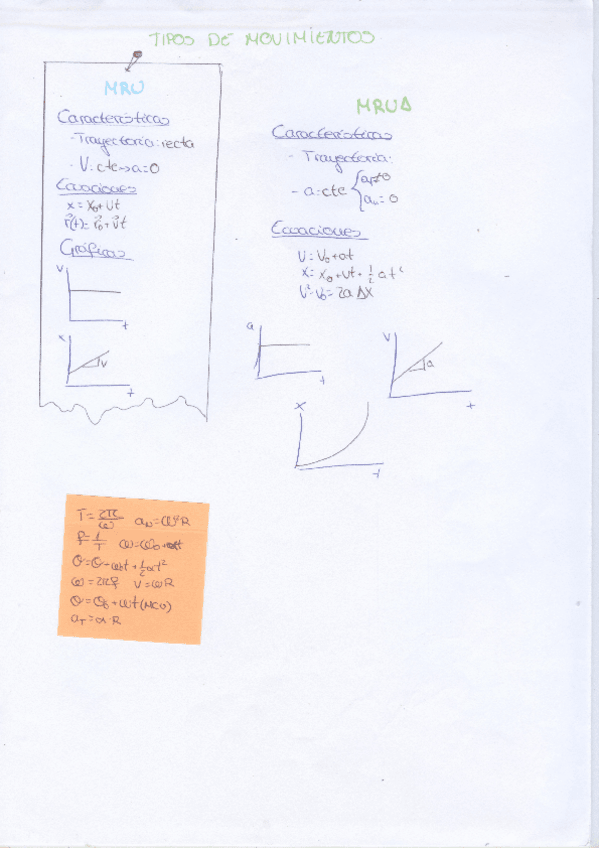 TIPOS DE MOVIMIENTOS
MRU
Características
- Trayectoria: recta
- V=cte→a=0
Ecuaciones
x = x₀ + vt
r⃗(t)= r⃗₀ + v⃗t
Gráficas
V
t
x
v
t
MRUA
Características
- Trayectoria:
- a=cte { aₜ≠0
aₙ=0
Ecuaciones
V = V₀ + at
x = x₀ + vt + ½ a t²
V² - V₀ = 2a Δx
a
t
V
a
t
x
t
T = 2π/ω  aₙ = ω²R
f = 1/T  ω = ω₀ + αt
θ = θ + ω₀t + ½αt²
ω = 2πf  V = ωR
θ = θ₀ + ωt (MCU)
aₜ = α·R